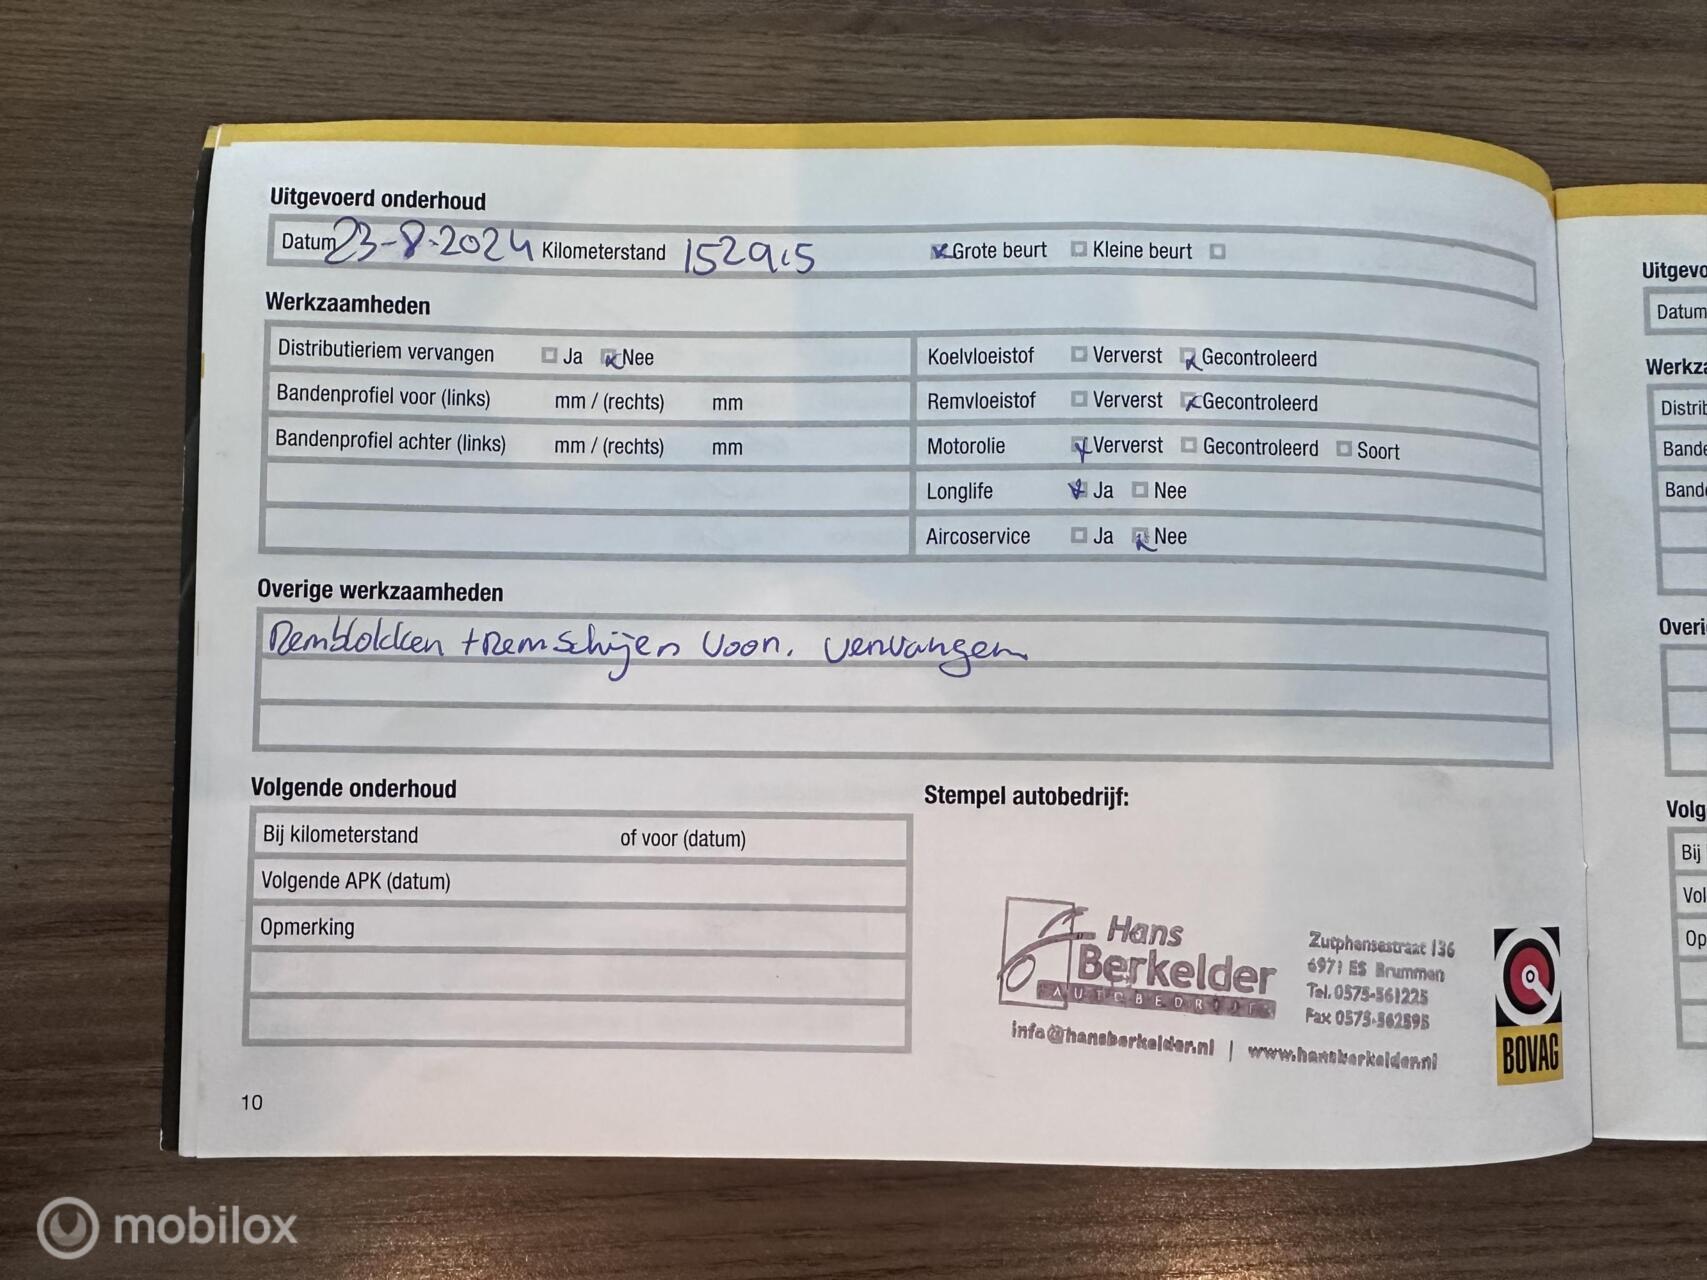 Uitgevoerd onderhoud
Datum 23-8-2024 Kilometerstand 152915 Grote beurt Kleine beurt
Werkzaamheden
Distributieriem vervangen Ja Nee Koelvloeistof Ververst Gecontroleerd
Bandenprofiel voor (links) mm / (rechts) mm Remvloeistof Ververst Gecontroleerd
Bandenprofiel achter (links) mm / (rechts) mm Motorolie Ververst Gecontroleerd Soort
Longlife Ja Nee
Aircoservice Ja Nee
Overige werkzaamheden
Remblokken + remschijven voor. vervangen
Volgende onderhoud
Bij kilometerstand of voor (datum)
Volgende APK (datum)
Opmerking
Stempel autobedrijf:
Hans
Berkelder
AUTOBEDRIJF
Zutphensestraat 136
6971 ES Brummen
Tel. 0575-561225
Fax 0575-562595
info@hansberkelder.nl | www.hansberkelder.nl
BOVAG
10
Uitgevo
Datum
Werkza
Distrib
Bande
Band
Overi
Volg
Bij
Vol
Op
mobilox